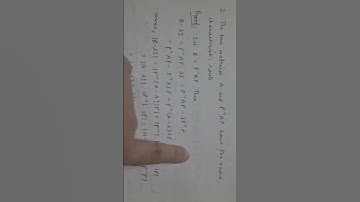 2. The two matrices A and P⁻¹AP have the same
characteristic roots.
Proof: Let B = P⁻¹AP Then
B-λI = P⁻¹AP - λI = P⁻¹AP - λP⁻¹P
= P⁻¹AP - P⁻¹λIP = P⁻¹(A-λI)P
Hence, |B-λI| = |P⁻¹(A-λI)P| = |P⁻¹|
= |A-λI| |P⁻¹| |P| = |A